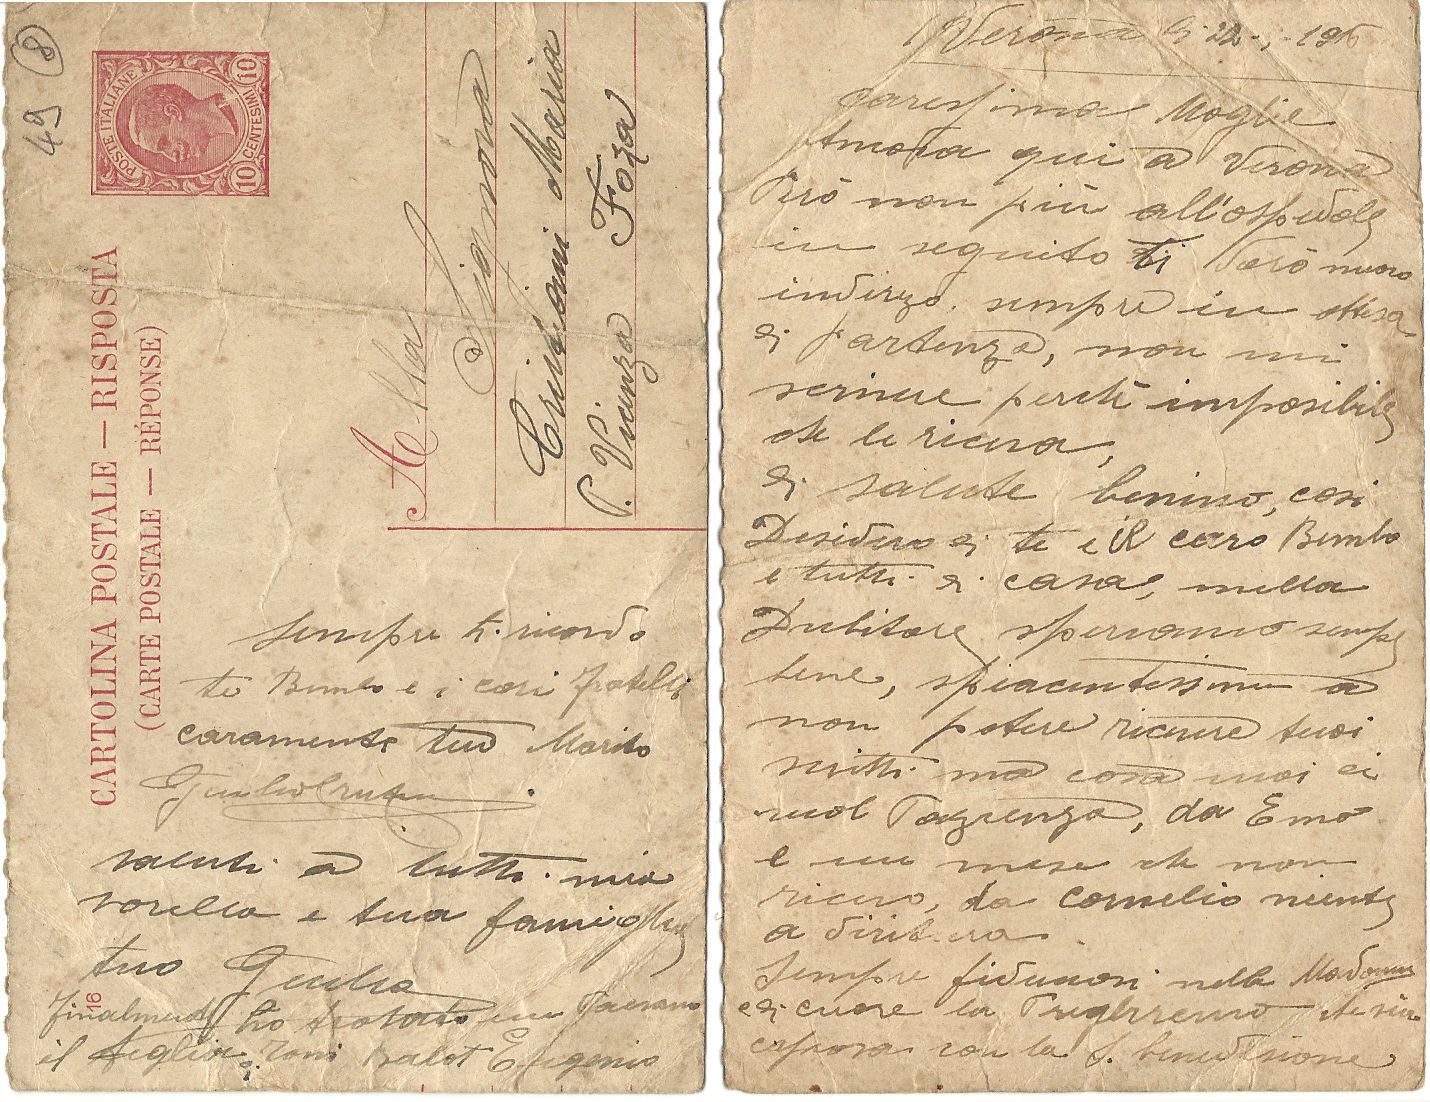 49 8
POSTE ITALIANE
10 CENTESIMI 10
CARTOLINA POSTALE — RISPOSTA
(CARTE POSTALE — RÉPONSE)
Alla
Signora
Maria
Foza
P. Vicenza
sempre ti ricordo
te Bimbo e i cari fratelli
caramente tuo Marito
saluti a tutti mia
sorella e tua famiglia
tuo Giulio
16
Finalmente ho trovato un Paesano
il figlio di Toni Balot Eugenio
Verona li 22
carissima Moglie
Ancora qui a Verona
Però non più all'ospedale
in seguito ti darò nuovo
indirizo. sempre in attesa
di partenza, non mi
scrivere perchè imposibile
che le riceva,
di salute benino, cosi
Desidero di te e il caro Bimbo
e tutti di casa, nella
Dubitare speriamo sempre
bene, spiacentissimo a
non potere ricevere tuoi
scritti ma cosa vuoi ci
vuol Pazienza, da Emo
è un mese che non
ricevo, da Cornelio niente
a diritura.
Sempre fiduciosi nella Madonna
e di cuore la Pregheremo
con la S. benedisione